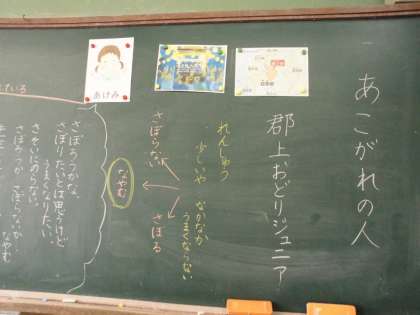 あこがれの人
郡上おどりジュニア
れんしゅう
少しいや なかなか
うまくならない
さぼらない
さぼる
なやむ
あけみ
さぼろうかな。
さぼりたいとは思うけど
うまくなりたい。
さそいにのらない。
さぼろうか さぼらないか
なやむ
ている